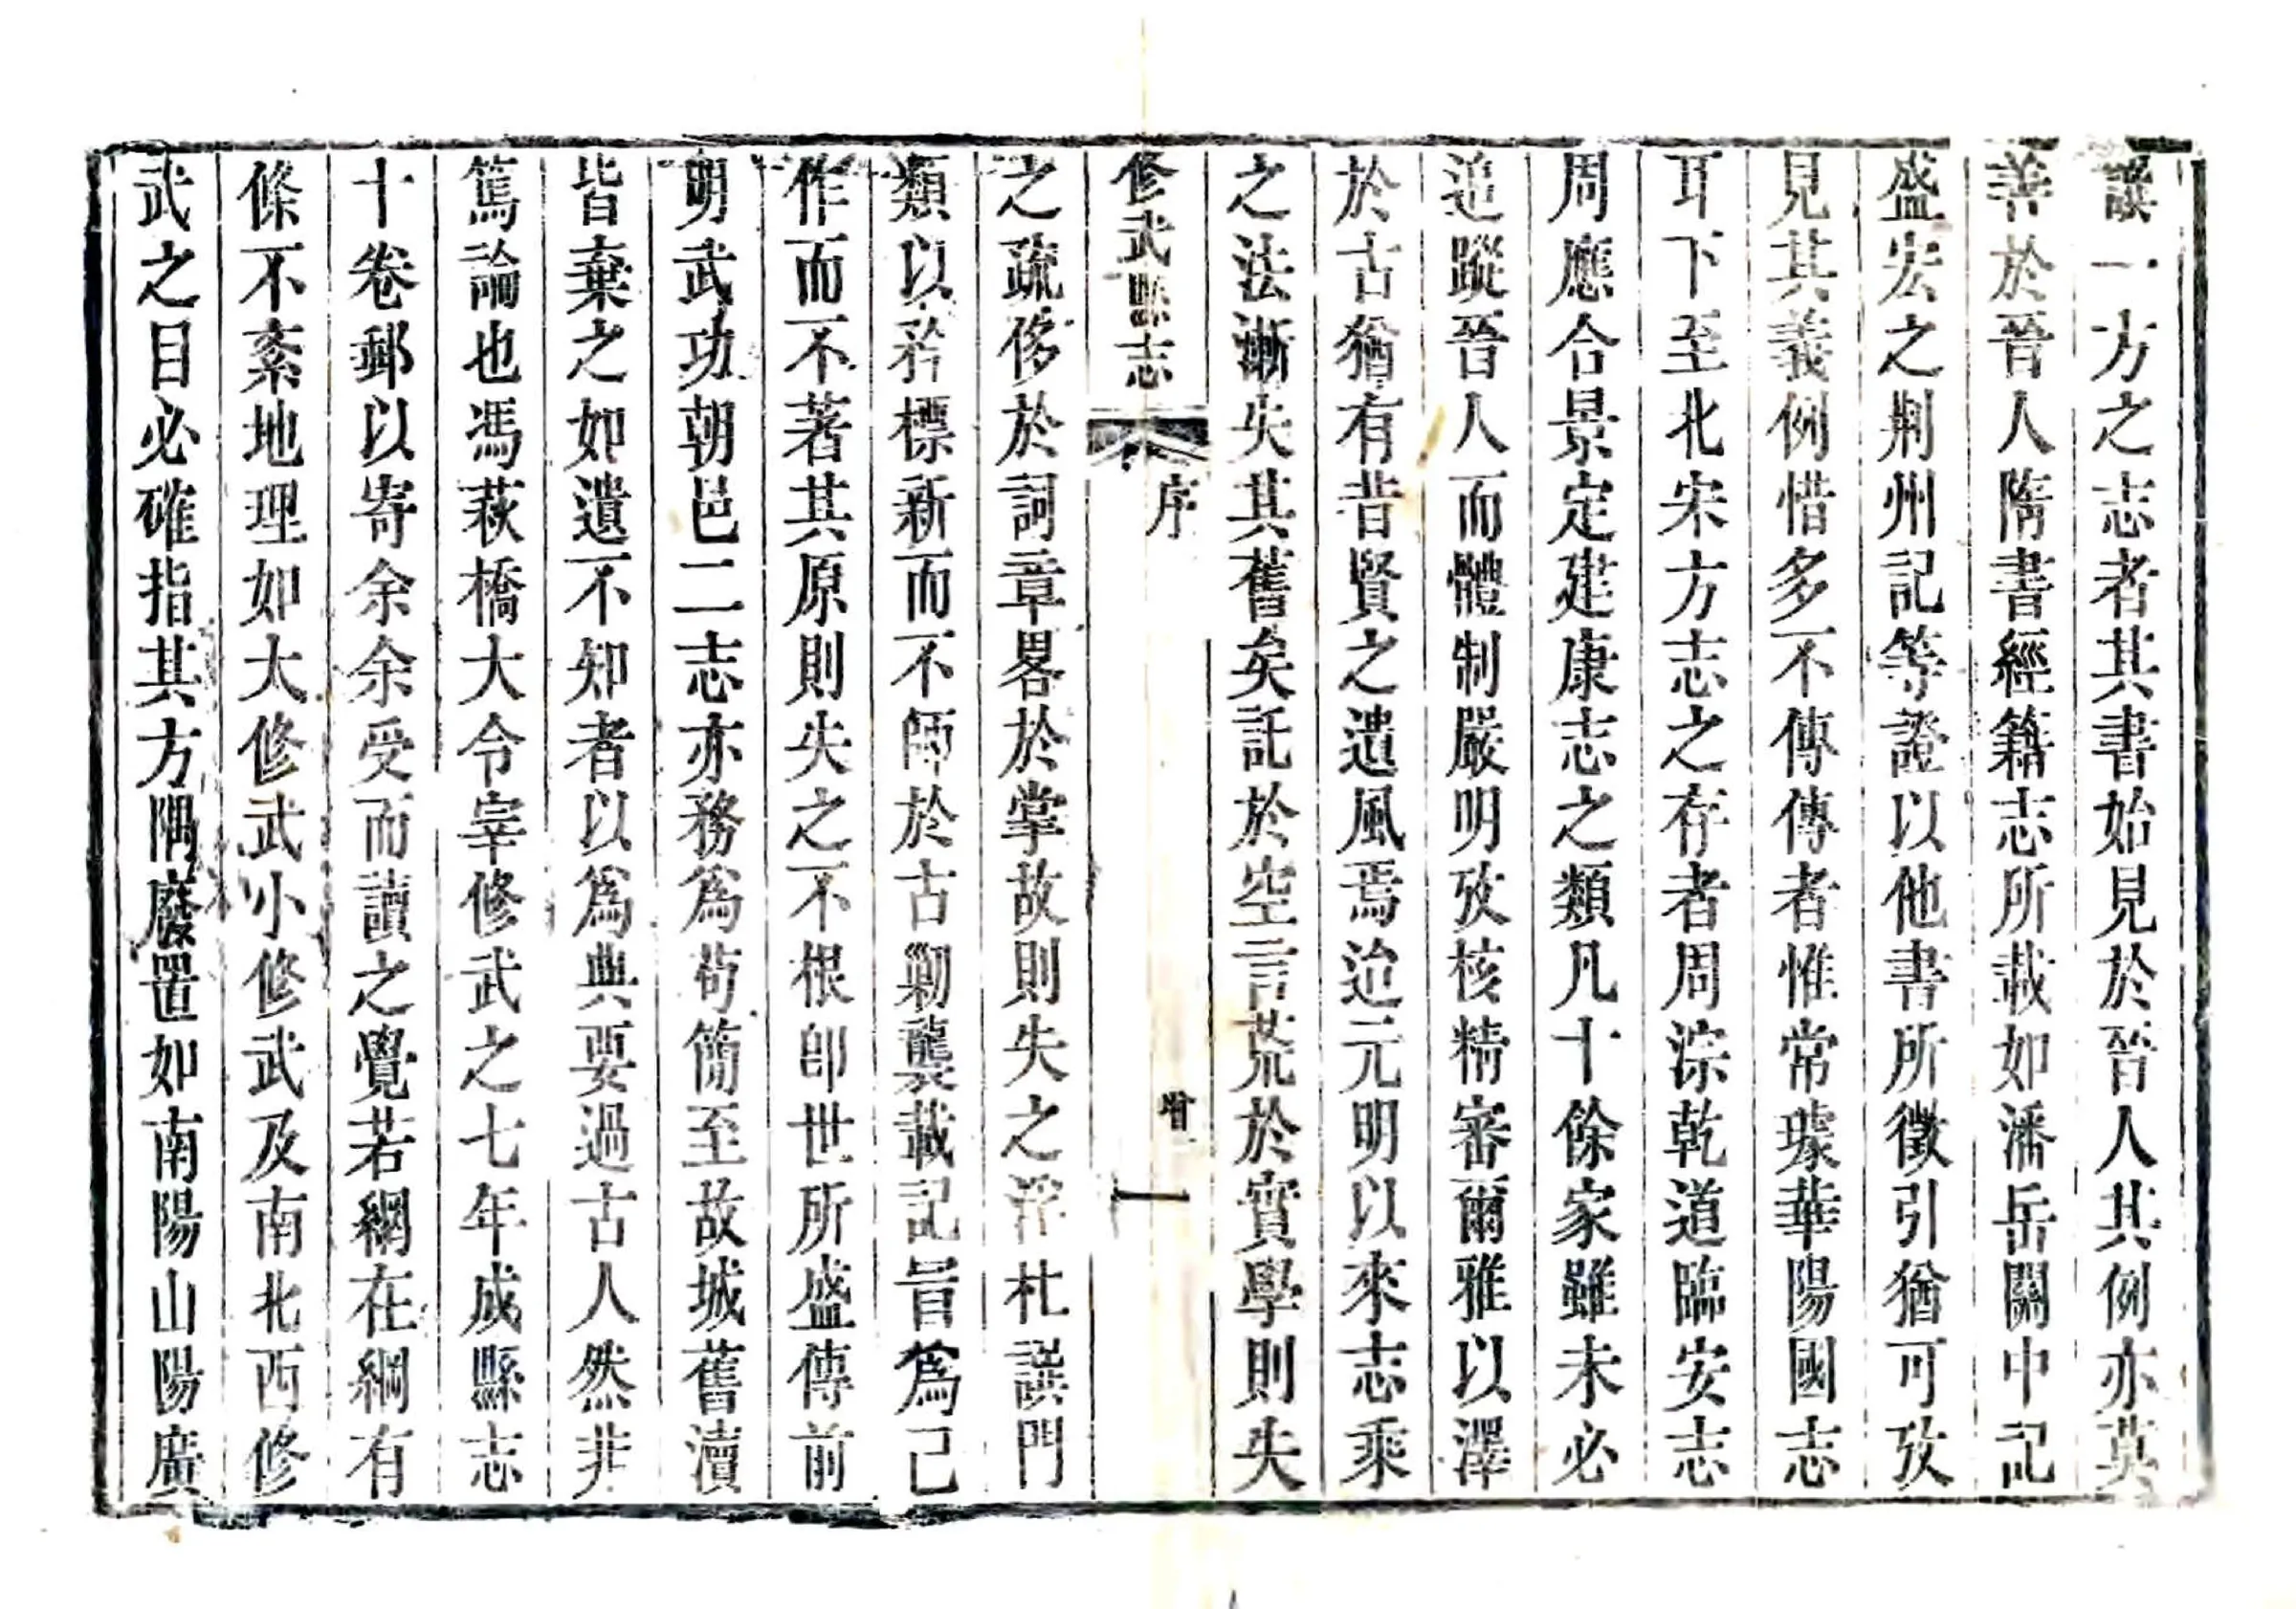 譔一方之志者其書始見於晉人其例亦莫
善於晉人隋書經籍志所載如潘岳關中記
盛宏之荆州記等證以他書所徵引猶可攷
見其義例惜多不傳傳者惟常璩華陽國志
耳下至北宋方志之存者周淙乾道臨安志
周應合景定建康志之類凡十餘家雖未必
追蹤晉人而體制嚴明攷核精審爾雅以澤
於古猶有昔賢之遺風焉迨元明以來志乘
之法漸失其舊矣託於空言荒於實學則失
修武縣志
序
一
之疏侈於詞章畧於掌故則失之浮杜譔門
類以矜標新而不師於古勦襲載記旨爲己
作而不著其原則失之不根卽世所盛傳前
明武功朝邑二志亦務爲苟簡至故城舊瀆
皆棄之如遺不知者以爲典要過古人然非
篤論也馮萩橋大令宰修武之七年成縣志
十卷郵以寄余余受而讀之覺若網在綱有
條不紊地理如大修武小修武及南北西修
武之目必確指其方隅廢置如南陽山陽廣